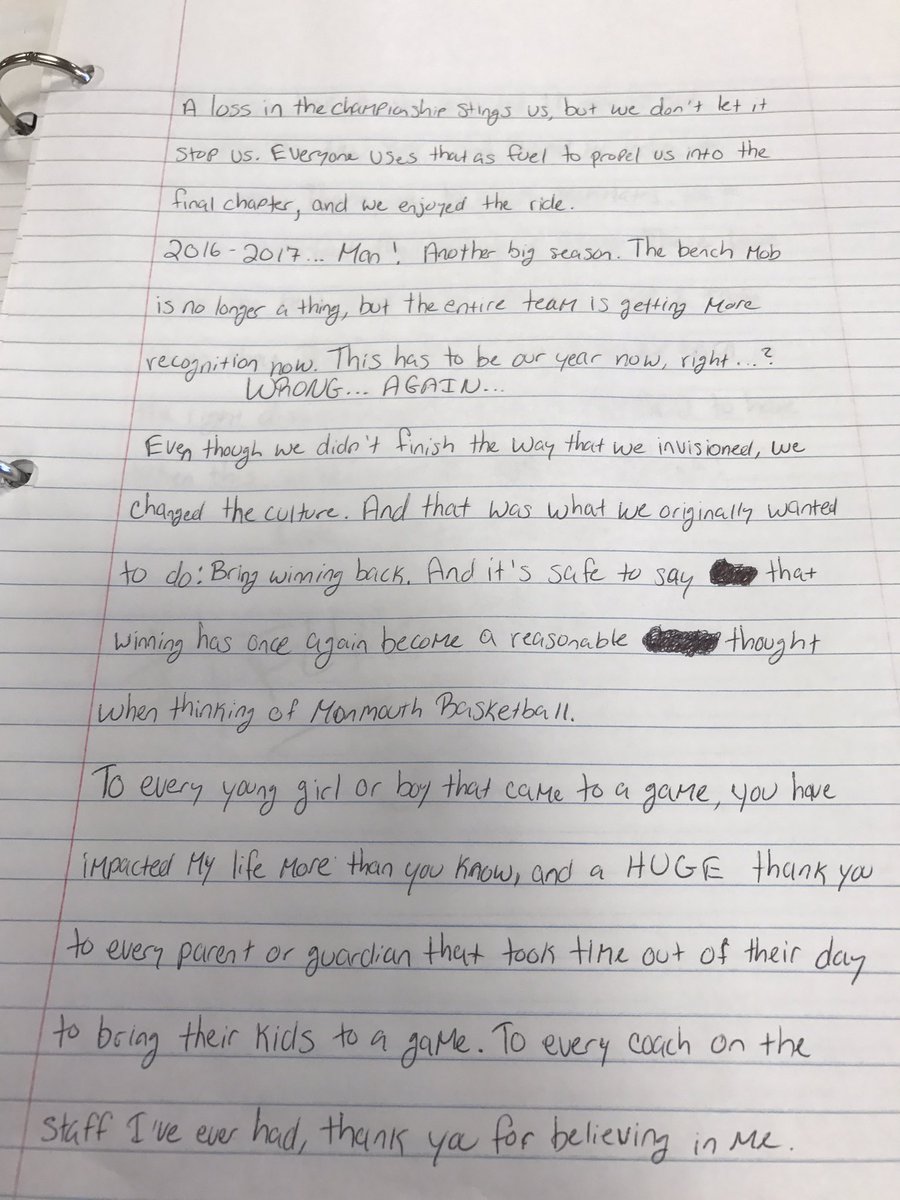 A loss in the championship stings us, but we don't let it
stop us. Everyone uses that as fuel to propel us into the
final chapter, and we enjoyed the ride.
2016-2017... Man! Another big season. The bench mob
is no longer a thing, but the entire team is getting more
recognition now. This has to be our year now, right...?
WRONG... AGAIN...
Even though we didn't finish the way that we invisioned, we
changed the culture. And that was what we originally wanted
to do: Bring winning back. And it's safe to say that
winning has once again become a reasonable thought
when thinking of Monmouth Basketball.
To every young girl or boy that came to a game, you have
impacted my life more than you know, and a HUGE thank you
to every parent or guardian that took time out of their day
to bring their kids to a game. To every coach on the
staff I've ever had, thank you for believing in me.